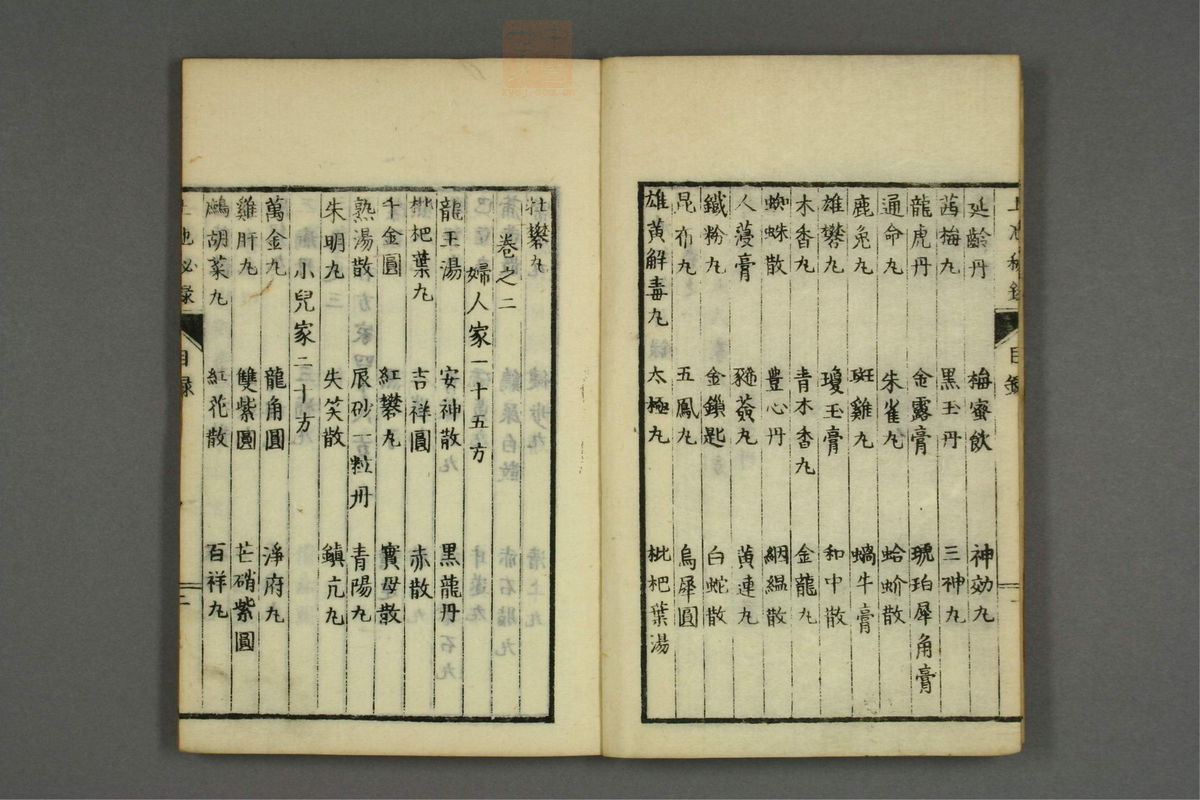 上池秘錄 目錄
延齡丹 梅蜜飲 神効丸
茜梅丸 黑玉丹 三神丸
龍虎丹 金露膏 琥珀犀角膏
通命丸 朱雀丸 蛤蚧散
鹿兔丸 斑雞丸 蝸牛膏
雄礬丸 瓊玉膏 和中散
木香丸 青木香丸 金龍丸
蜘蛛散 豊心丹 絪縕散
人蓡膏 豨薟丸 黃連丸
鐵粉丸 金鎖匙 白蛇散
昆布丸 五鳳丸 烏犀圓
雄黃解毒丸 太極丸 枇杷葉湯
牡礬丸
卷之二
婦人家一十五方
龍王湯 安神散 黑龍丹
枇杷葉丸 吉祥圓 赤散
千金圓 紅礬丸 寶母散
熟湯散 辰砂一粒丹 青陽丸
朱明丸 失笑散 鎮亢丸
小兒家二十方
萬金丸 龍角圓 淨府丸
雞肝丸 雙紫圓 芒硝紫圓
鷓胡菜丸 紅花散 百祥丸
上池秘錄 目錄